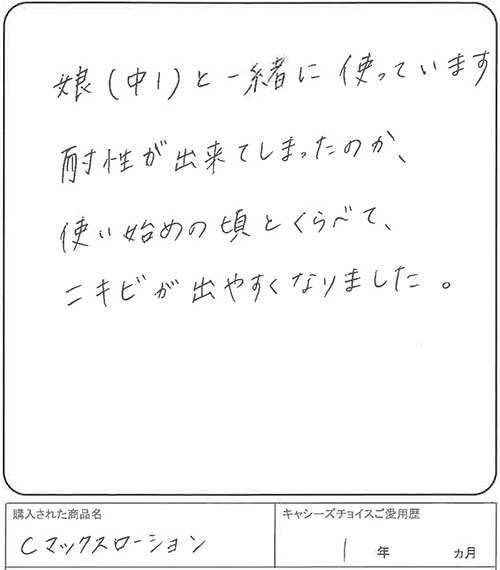 娘(中1)と一緒に使っています
耐性が出来てしまったのか、
使い始めの頃とくらべて、
ニキビが出やすくなりました。
購入された商品名
キャシーズチョイスご愛用歴
Cマックスローション
1年 ヵ月